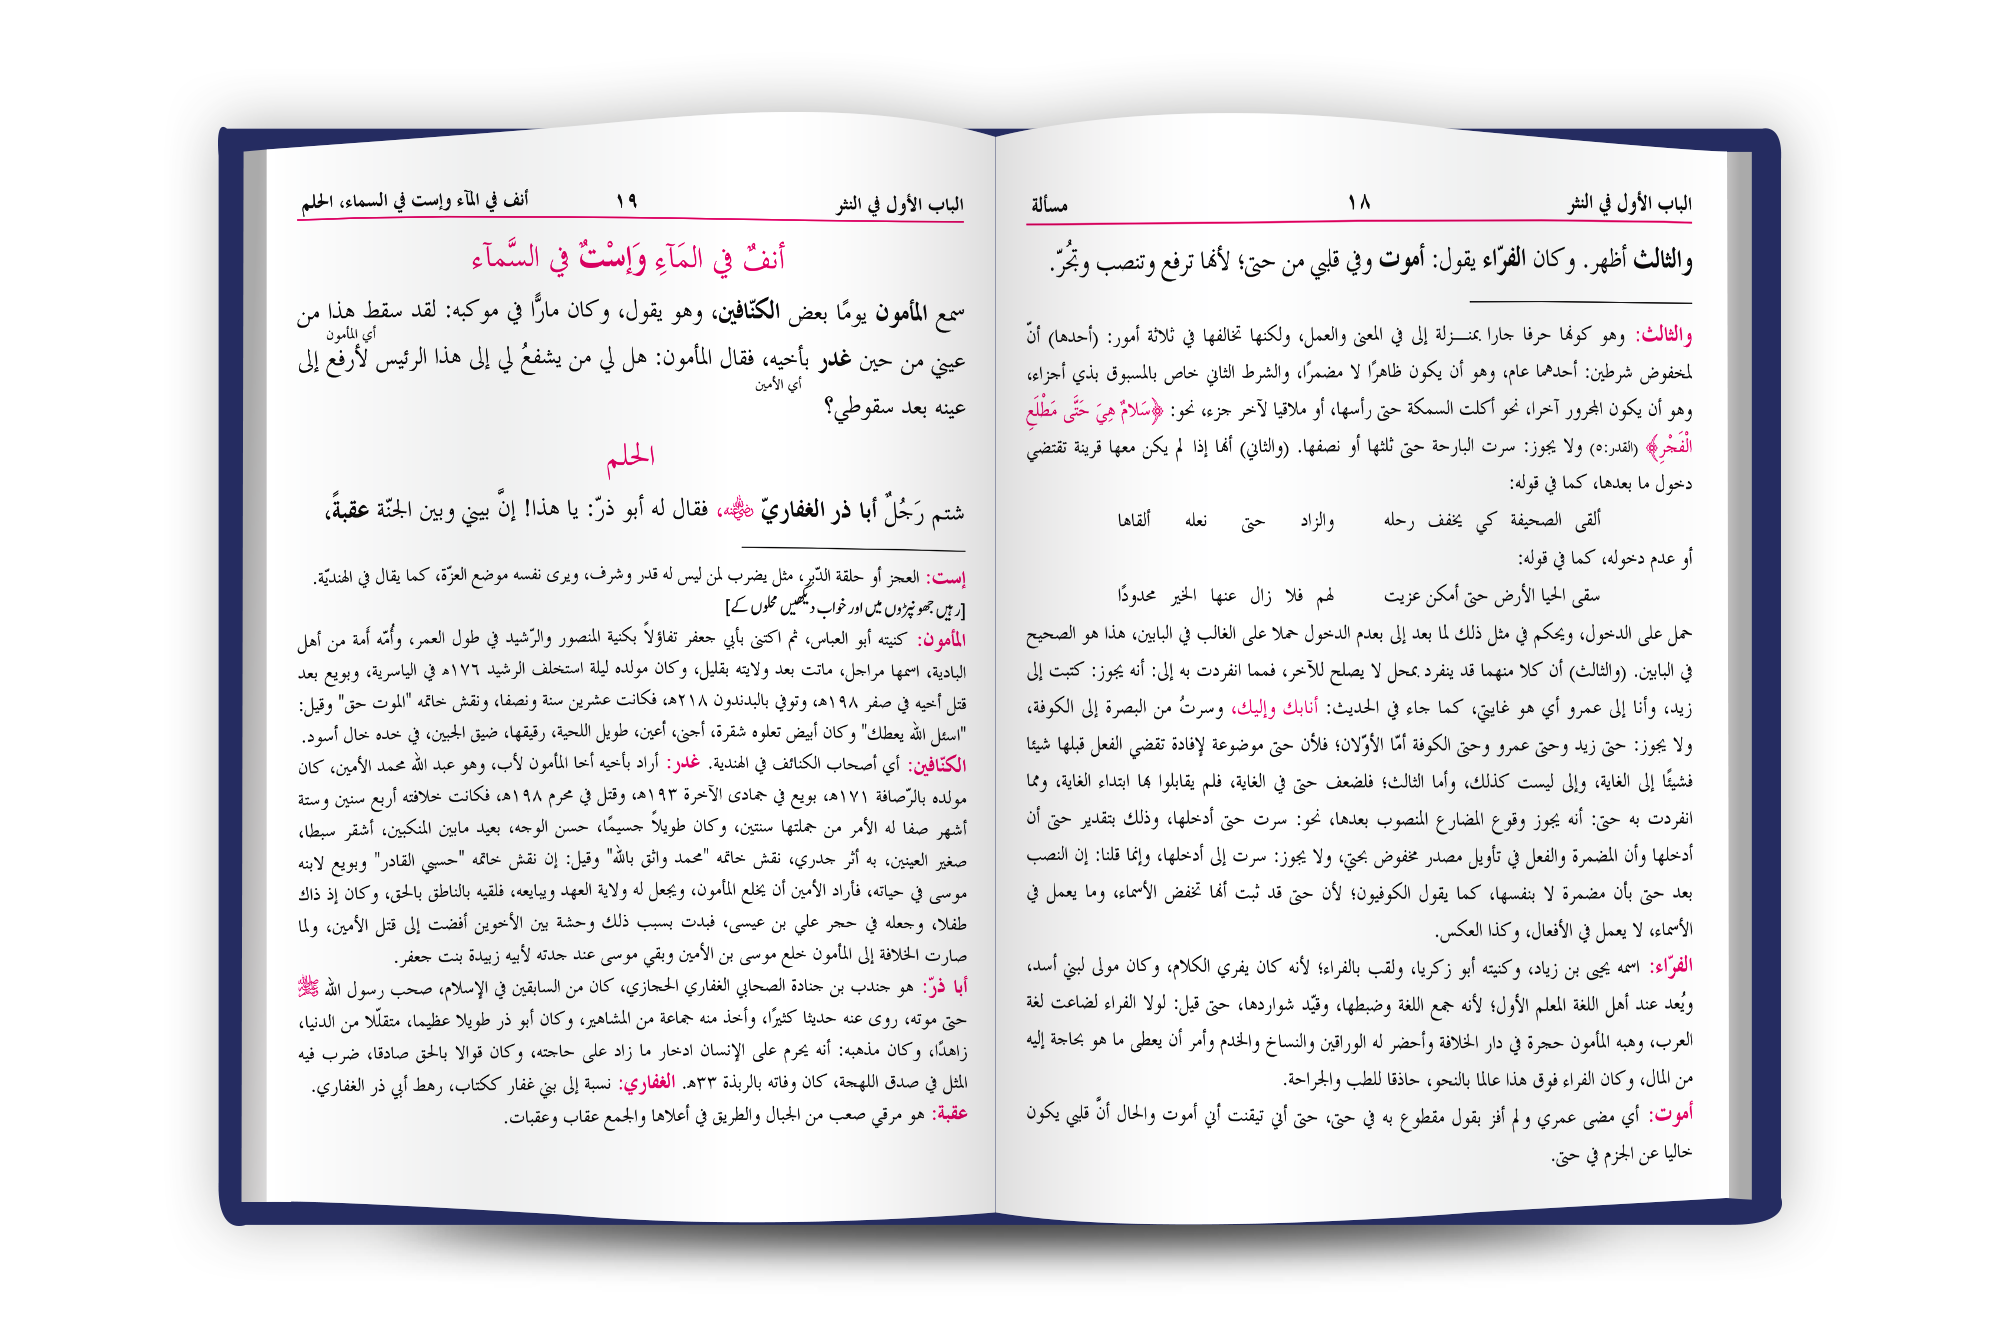 الباب الأول في النثر ١٨ مسألة
والثالث أظهر. وكان الفرّاء يقول: أموت وفي قلبي من حتى؛ لأنها ترفع وتنصب وتجُرّ.
والثالث: وهو كونها حرفا جارا بمنـــزلة إلى في المعنى والعمل، ولكنها تخالفها في ثلاثة أمور: (أحدها) أنّ
لمخفوض شرطين: أحدهما عام، وهو أن يكون ظاهرًا لا مضمرًا، والشرط الثاني خاص بالمسبوق بذي أجزاء،
وهو أن يكون المجرور آخرا، نحو أكلت السمكة حتى رأسها، أو ملاقيا لآخر جزء، نحو: ﴿سَلامٌ هِيَ حَتَّى مَطْلَعِ
الْفَجْرِ﴾ (القدر:٥) ولا يجوز: سرت البارحة حتى ثلثها أو نصفها. (والثاني) أنها إذا لم يكن معها قرينة تقتضي
دخول ما بعدها، كما في قوله:
ألقى الصحيفة كي يخفف رحله والزاد حتى نعله ألقاها
أو عدم دخوله، كما في قوله:
سقى الحيا الأرض حتى أمكن عزيت لهم فلا زال عنها الخير محدودًا
حمل على الدخول، ويحكم في مثل ذلك لما بعد إلى بعدم الدخول حملا على الغالب في البابين، هذا هو الصحيح
في البابين. (والثالث) أن كلا منهما قد ينفرد بمحل لا يصلح للآخر، فمما انفردت به إلى: أنه يجوز: كتبت إلى
زيد، وأنا إلى عمرو أي هو غايتي، كما جاء في الحديث: أنابك وإليك، وسرتُ من البصرة إلى الكوفة،
ولا يجوز: حتى زيد وحتى عمرو وحتى الكوفة أمّا الأوّلان؛ فلأن حتى موضوعة لإفادة تقضي الفعل قبلها شيئا
فشيئًا إلى الغاية، وإلى ليست كذلك، وأما الثالث؛ فلضعف حتى في الغاية، فلم يقابلوا بها ابتداء الغاية، ومما
انفردت به حتى: أنه يجوز وقوع المضارع المنصوب بعدها، نحو: سرت حتى أدخلها، وذلك بتقدير حتى أن
أدخلها وأن المضمرة والفعل في تأويل مصدر مخفوض بحتي، ولا يجوز: سرت إلى أدخلها، وإنما قلنا: إن النصب
بعد حتى بأن مضمرة لا بنفسها، كما يقول الكوفيون؛ لأن حتى قد ثبت أنها تخفض الأسماء، وما يعمل في
الأسماء، لا يعمل في الأفعال، وكذا العكس.
الفرّاء: اسمه يحيى بن زياد، وكنيته أبو زكريا، ولقب بالفراء؛ لأنه كان يفري الكلام، وكان مولى لبني أسد،
ويُعد عند أهل اللغة المعلم الأول؛ لأنه جمع اللغة وضبطها، وقيّد شواردها، حتى قيل: لولا الفراء لضاعت لغة
العرب، وهبه المأمون حجرة في دار الخلافة وأحضر له الوراقين والنساخ والخدم وأمر أن يعطى ما هو بحاجة إليه
من المال، وكان الفراء فوق هذا عالما بالنحو، حاذقا للطب والجراحة.
أموت: أي مضى عمري ولم أفز بقول مقطوع به في حتى، حتى أني تيقنت أني أموت والحال أنَّ قلبي يكون
خاليا عن الجزم في حتى.
الباب الأول في النثر ١٩ أنف في المآء وإست في السماء، الحلم
أنفٌ في المَآءِ وَإسْتٌ في السَّمآء
سمع المأمون يومًا بعض الكنّافين، وهو يقول، وكان مارًّا في موكبه: لقد سقط هذا من
أي المأمون
عيني من حين غدر بأخيه، فقال المأمون: هل لي من يشفعُ لي إلى هذا الرئيس لأرفع إلى
أي الأمين
عينه بعد سقوطي؟
الحلم
شتم رَجُلٌ أبا ذر الغفاريّ رضي الله عنه، فقال له أبو ذرّ: يا هذا! إنَّ بيني وبين الجنّة عقبةً،
إست: العجز أو حلقة الدّبر، مثل يضرب لمن ليس له قدر وشرف، ويرى نفسه موضع العزّة، كما يقال في الهنديّة.
[رہیں جھونپڑوں میں اور خواب دیکھیں محلوں کے]
المأمون: كنيته أبو العباس، ثم اكتنى بأبي جعفر تفاؤلاً بكنية المنصور والرّشيد في طول العمر، وأُمّه أَمة من أهل
البادية، اسمها مراجل، ماتت بعد ولايته بقليل، وكان مولده ليلة استخلف الرشيد ١٧٦ه في الياسرية، وبويع بعد
قتل أخيه في صفر ١٩٨ه، وتوفي بالبدندون ٢١٨ه، فكانت عشرين سنة ونصفا، ونقش خاتمه "الموت حق" وقيل:
"اسئل الله يعطك" وكان أبيض تعلوه شقرة، أجنى، أعين، طويل اللحية، رقيقها، ضيق الجبين، في خده خال أسود.
الكنّافين: أي أصحاب الكنائف في الهندية. غدر: أراد بأخيه أخا المأمون لأب، وهو عبد الله محمد الأمين، كان
مولده بالرّصافة ١٧١ه، بويع في جمادى الآخرة ١٩٣ه، وقتل في محرم ١٩٨ه، فكانت خلافته أربع سنين وستة
أشهر صفا له الأمر من جملتها سنتين، وكان طويلاً جسيمًا، حسن الوجه، بعيد مابين المنكبين، أشقر سبطا،
صغير العينين، به أثر جدري، نقش خاتمه "محمد واثق بالله" وقيل: إن نقش خاتمه "حسبي القادر" وبويع لابنه
موسى في حياته، فأراد الأمين أن يخلع المأمون، ويجعل له ولاية العهد ويبايعه، فلقبه بالناطق بالحق، وكان إذ ذاك
طفلا، وجعله في حجر علي بن عيسى، فبدت بسبب ذلك وحشة بين الأخوين أفضت إلى قتل الأمين، ولما
صارت الخلافة إلى المأمون خلع موسى بن الأمين وبقي موسى عند جدته لأبيه زبيدة بنت جعفر.
أبا ذرّ: هو جندب بن جنادة الصحابي الغفاري الحجازي، كان من السابقين في الإسلام، صحب رسول الله ﷺ
حتى موته، روى عنه حديثا كثيرًا، وأخذ منه جماعة من المشاهير، وكان أبو ذر طويلا عظيما، متقلّلا من الدنيا،
زاهدًا، وكان مذهبه: أنه يحرم على الإنسان ادخار ما زاد على حاجته، وكان قوالا بالحق صادقا، ضرب فيه
المثل في صدق اللهجة، كان وفاته بالربذة ٣٣ه. الغفاري: نسبة إلى بني غفار ككتاب، رهط أبي ذر الغفاري.
عقبة: هو مرقي صعب من الجبال والطريق في أعلاها والجمع عقاب وعقبات.